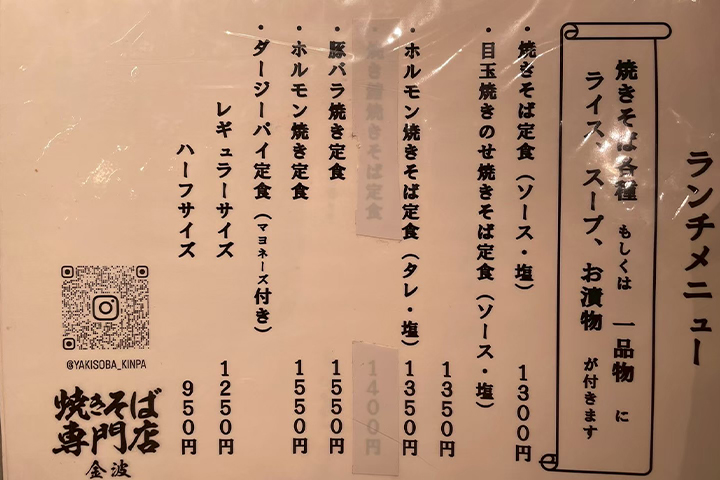 ランチメニュー
焼きそば各種 もしくは 一品物 に
ライス、スープ、お漬物 が付きます
・焼きそば定食（ソース・塩） 1300円
・目玉焼きのせ焼きそば定食（ソース・塩） 1350円
・ホルモン焼きそば定食（タレ・塩） 1350円
焼きそば定食 1400円
・豚バラ焼き定食 1550円
・ホルモン焼き定食 1550円
・ダージーパイ定食（マヨネーズ付き）
レギュラーサイズ 1250円
ハーフサイズ 950円
@YAKISOBA_KINPA
焼きそば
専門店
金波